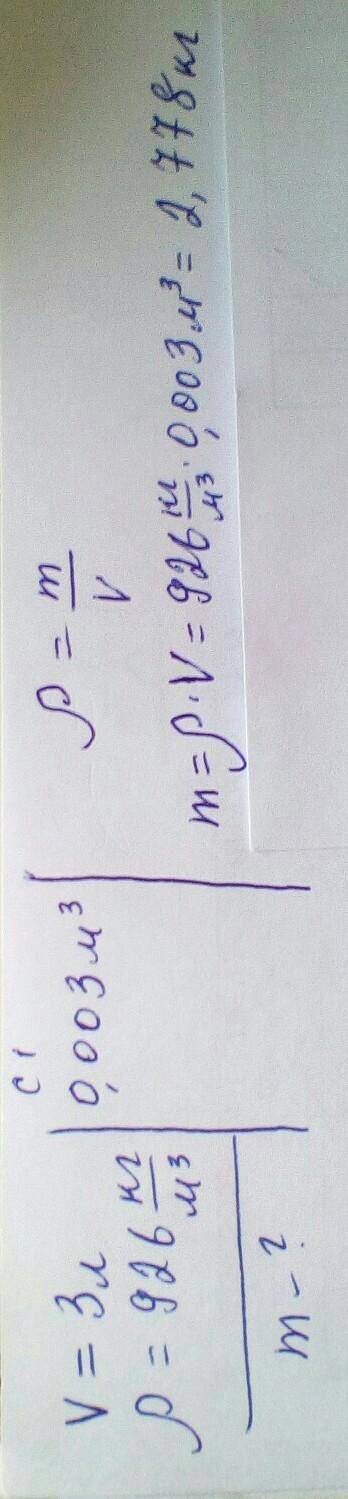 V = 3л
ρ = 926 кг/м³
m - ?
СИ
0,003 м³
ρ = m/V
m = ρ · V = 926 кг/м³ · 0,003 м³ = 2,778 кг